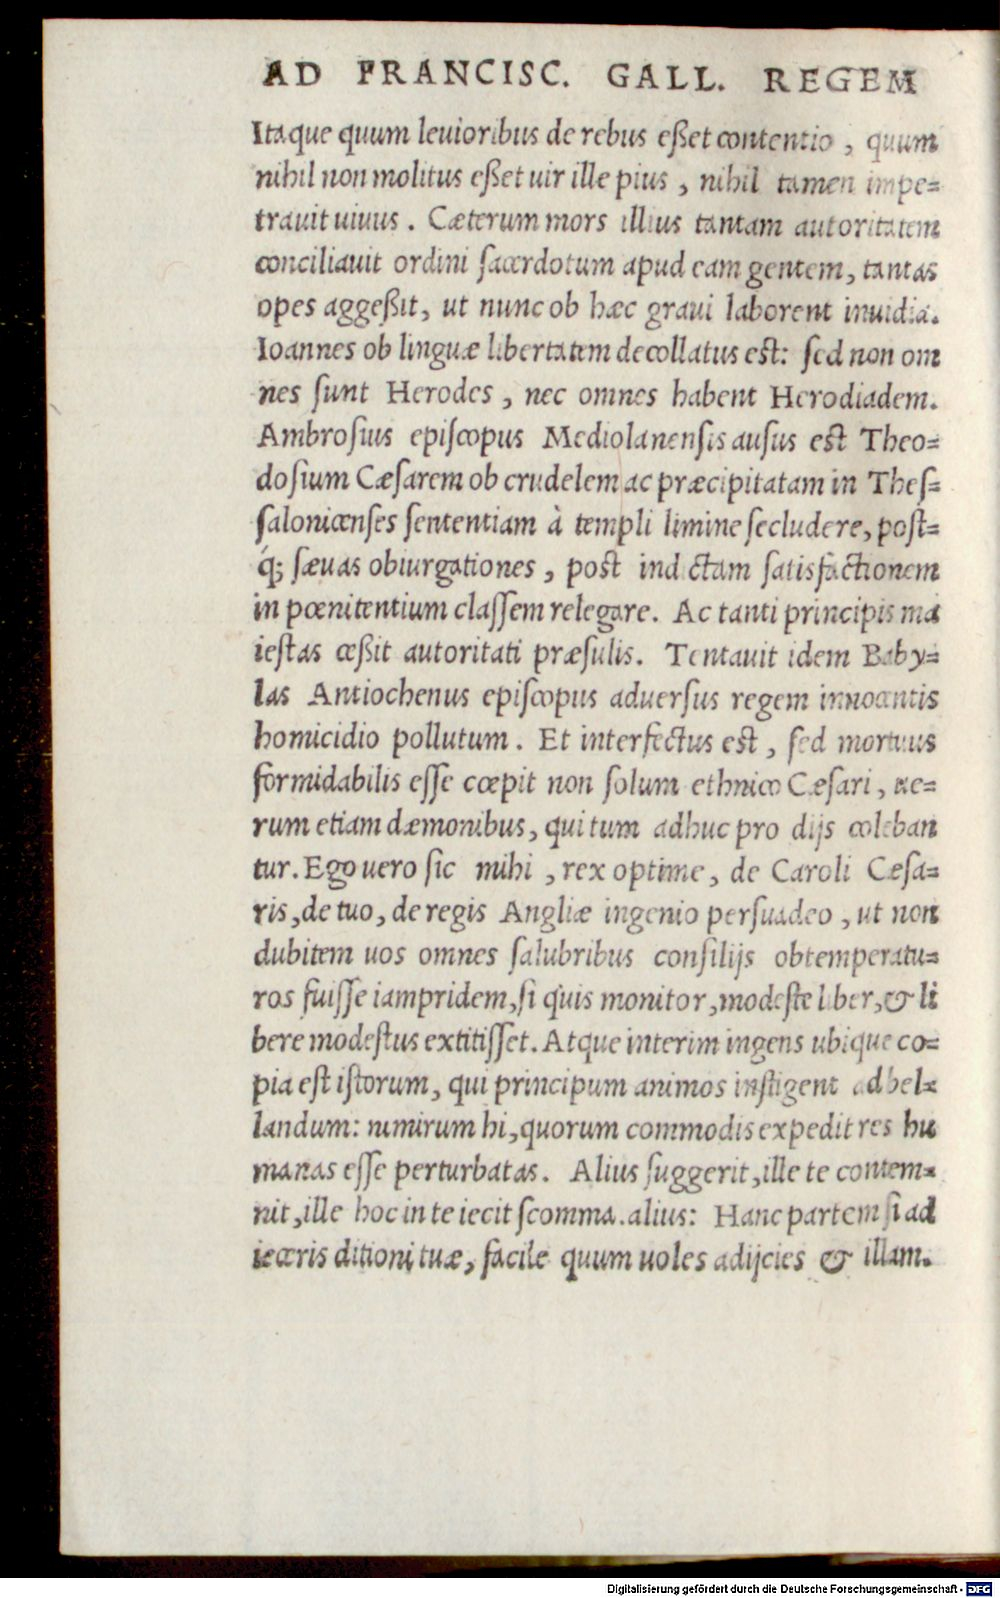 AD FRANCISC. GALL. REGEM
Itaque quum leuioribus de rebus eßet contentio, quum
nihil non molitus eßet uir ille pius, nihil tamen impe=
trauit uiuus. Cæterum mors illius tantam autoritatem
conciliauit ordini ſacerdotum apud eam gentem, tantas
opes aggeßit, ut nunc ob hæc graui laborent inuidia.
Ioannes ob linguæ libertatem decollatus est: ſed non om
nes ſunt Herodes, nec omnes habent Herodiadem.
Ambroſius epiſcopus Mediolanenſis auſus est Theo=
doſium Cæſarem ob crudelem ac præcipitatam in Theſ=
ſalonicenſes ſententiam à templi limine ſecludere, poſt=
q́; ſæuas obiurgationes, post indictam ſatisfactionem
in pœnitentium claſſem relegare. Ac tanti principis ma
ieſtas ceßit autoritati præſulis. Tentauit idem Baby=
las Antiochenus epiſcopus aduerſus regem innocentis
homicidio pollutum. Et interfectus est, ſed mortuus
formidabilis eſſe cœpit non ſolum ethnico Cæſari, ue=
rum etiam dæmonibus, qui tum adhuc pro dijs coleban
tur. Ego uero ſic mihi, rex optime, de Caroli Cæſa=
ris, de tuo, de regis Angliæ ingenio perſuadeo, ut non
dubitem uos omnes ſalubribus conſilijs obtemperatu=
ros fuiſſe iampridem, ſi quis monitor, modeſte liber, & li
bere modeſtus extitiſſet. Atque interim ingens ubique co=
pia est iſtorum, qui principum animos inſtigent ad bel=
landum: nimirum hi, quorum commodis expedit res hu
manas eſſe perturbatas. Alius ſuggerit, ille te contem=
nit, ille hoc in te iecit ſcomma. alius: Hanc partem ſi ad
ieceris ditioni tuæ, facile quum uoles adijcies & illam.
Digitalisierung gefördert durch die Deutsche Forschungsgemeinschaft - DFG